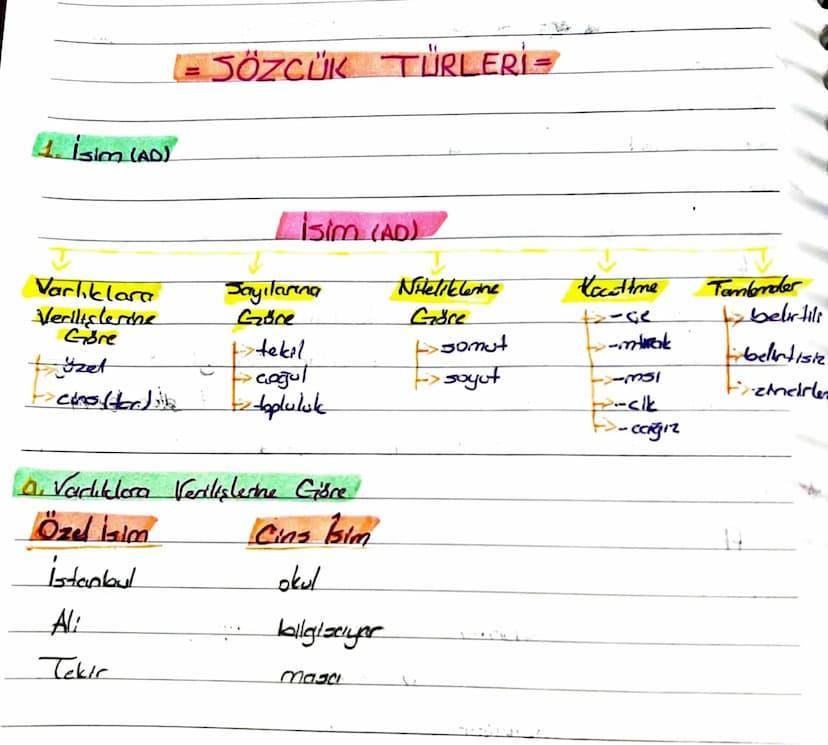 = SÖZCÜK TÜRLERİ =
1. İsim (AD)
İsim (AD)
Varlıklara Verilişlerine Göre
özel
cins (tür)
Sayılarına Göre
tekil
çoğul
topluluk
Niteliklerine Göre
somut
soyut
Küçültme
-ce
-mtırak
-msı
-cık
-cağız
Tamlamalar
belirtili
belirtisiz
zincirleme
a. Varlıklara Verilişlerine Göre
Özel İsim Cins İsim
İstanbul okul
Ali bilgisayar
Tekir masa